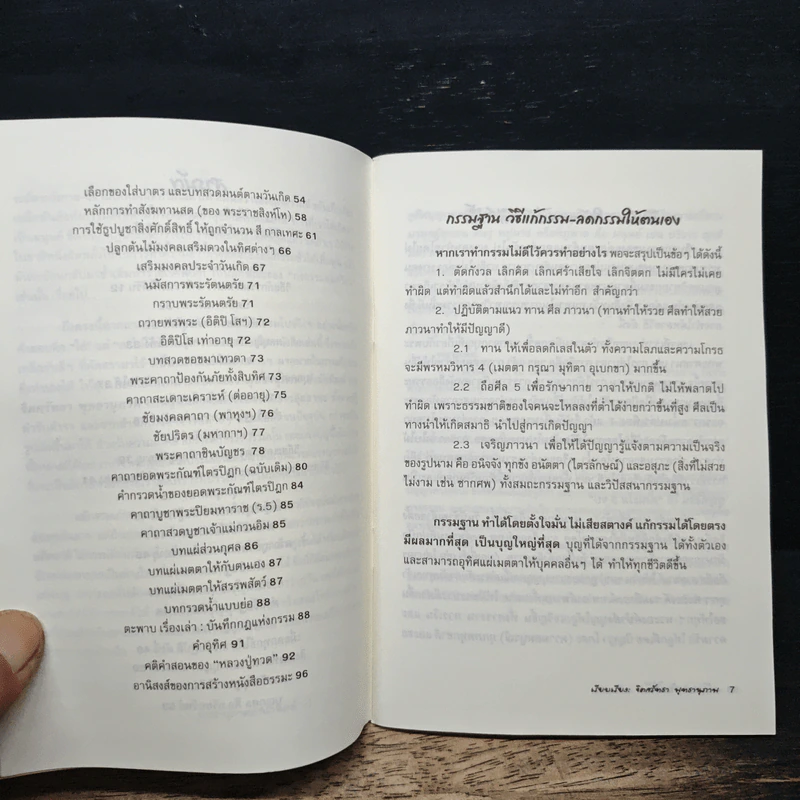 เลือกของใส่บาตร และบทสวดมนต์ตามวันเกิด 54
หลักการทำสังฆทานสด (ของ พระราชสิงห์โห) 58
การใช้ธูปบูชาสิ่งศักดิ์สิทธิ์ ให้ถูกจำนวน สี กาลเทศะ 61
ปลูกต้นไม้มงคลเสริมดวงในทิศต่างๆ 66
เสริมมงคลประจำวันเกิด 67
นมัสการพระรัตนตรัย 71
กราบพระรัตนตรัย 71
ถวายพรพระ (อิติปิ โสฯ) 72
อิติปิโส เท่าอายุ 72
บทสวดขอขมาเทวดา 73
พระคาถาป้องกันภัยทั้งสิบทิศ 73
คาถาสะเดาะเคราะห์ (ต่ออายุ) 75
ชัยมงคลคาถา (พาหุงฯ) 76
ชัยปริตร (มหากาฯ) 77
พระคาถาชินบัญชร 78
คาถายอดพระกัณฑ์ไตรปิฎก (ฉบับเดิม) 80
คำกรวดน้ำของยอดพระกัณฑ์ไตรปิฎก 84
คาถาบูชาพระปิยมหาราช (ร.5) 85
คาถาสวดบูชาเจ้าแม่กวนอิม 85
บทแผ่ส่วนกุศล 86
บทแผ่เมตตาให้กับตนเอง 87
บทแผ่เมตตาให้สรรพสัตว์ 87
บทกรวดน้ำแบบย่อ 88
ตะพาบ เรื่องเล่า : บันทึกกฎแห่งกรรม 88
คำอุทิศ 91
คติคำสอนของ “หลวงปู่ทวด” 92
อานิสงส์ของการสร้างหนังสือธรรมะ 96
กรรมฐาน วิธีแก้กรรม-ลดกรรมให้ตนเอง
หากเราทำกรรมไม่ดีไว้ควรทำอย่างไร พอจะสรุปเป็นข้อๆ ได้ดังนี้
1. ตัดกังวล เลิกคิด เลิกเศร้าเสียใจ เลิกจิตตก ไม่มีใครไม่เคย
ทำผิด แต่ทำผิดแล้วสำนึกได้และไม่ทำอีก สำคัญกว่า
2. ปฏิบัติตามแนว ทาน ศีล ภาวนา (ทานทำให้รวย ศีลทำให้สวย
ภาวนาทำให้มีปัญญาดี)
2.1 ทาน ให้เพื่อลดกิเลสในตัว ทั้งความโลภและความโกรธ
จะมีพรหมวิหาร 4 (เมตตา กรุณา มุทิตา อุเบกขา) มากขึ้น
2.2 ถือศีล 5 เพื่อรักษากาย วาจาให้ปกติ ไม่ให้พลาดไป
ทำผิด เพราะธรรมชาติของใจคนจะไหลลงที่ต่ำได้ง่ายกว่าขึ้นที่สูง ศีลเป็น
ทางนำให้เกิดสมาธิ นำไปสู่การเกิดปัญญา
2.3 เจริญภาวนา เพื่อให้ได้ปัญญารู้แจ้งตามความเป็นจริง
ของรูปนาม คือ อนิจจัง ทุกขัง อนัตตา (ไตรลักษณ์) และอสุภะ (สิ่งที่ไม่สวย
ไม่งาม เช่น ซากศพ) ทั้งสมถะกรรมฐาน และวิปัสสนากรรมฐาน
กรรมฐาน ทำได้โดยตั้งใจมั่น ไม่เสียสตางค์ แก้กรรมได้โดยตรง
มีผลมากที่สุด เป็นบุญใหญ่ที่สุด บุญที่ได้จากกรรมฐาน ได้ทั้งตัวเอง
และสามารถอุทิศแผ่เมตตาให้บุคคลอื่นๆ ได้ ทำให้ทุกชีวิตดีขึ้น
เรียบเรียง: จิตตวัชรา พุทธานุภาพ 7